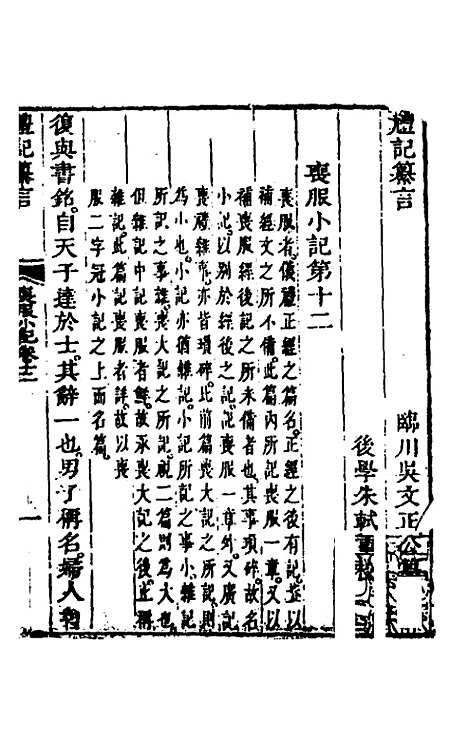 禮記纂言
臨川吳文正公
後學朱軾
喪服小記第十二
喪服者儀禮正經之篇名正經之後有記蓋以
補經文之所不備此篇內所記喪服一章又以
補喪服經後記之所未備者也其事瑣碎故名
小記以別於經後之記記喪服一章外又廣記
喪禮雜事亦皆瑣碎比前篇喪大記之所記則
為小也小記亦猶雜記小記所記之事小雜記
所記之事雜喪大記之所記視二篇則為大也
但雜記中記喪服者鮮故承喪大記之後止稱
雜記此篇記喪服者詳故以喪
服二字冠小記之上而名篇
復與書銘自天子達於士其辭一也男子稱名婦人
禮記纂言
喪服小記卷十二
一